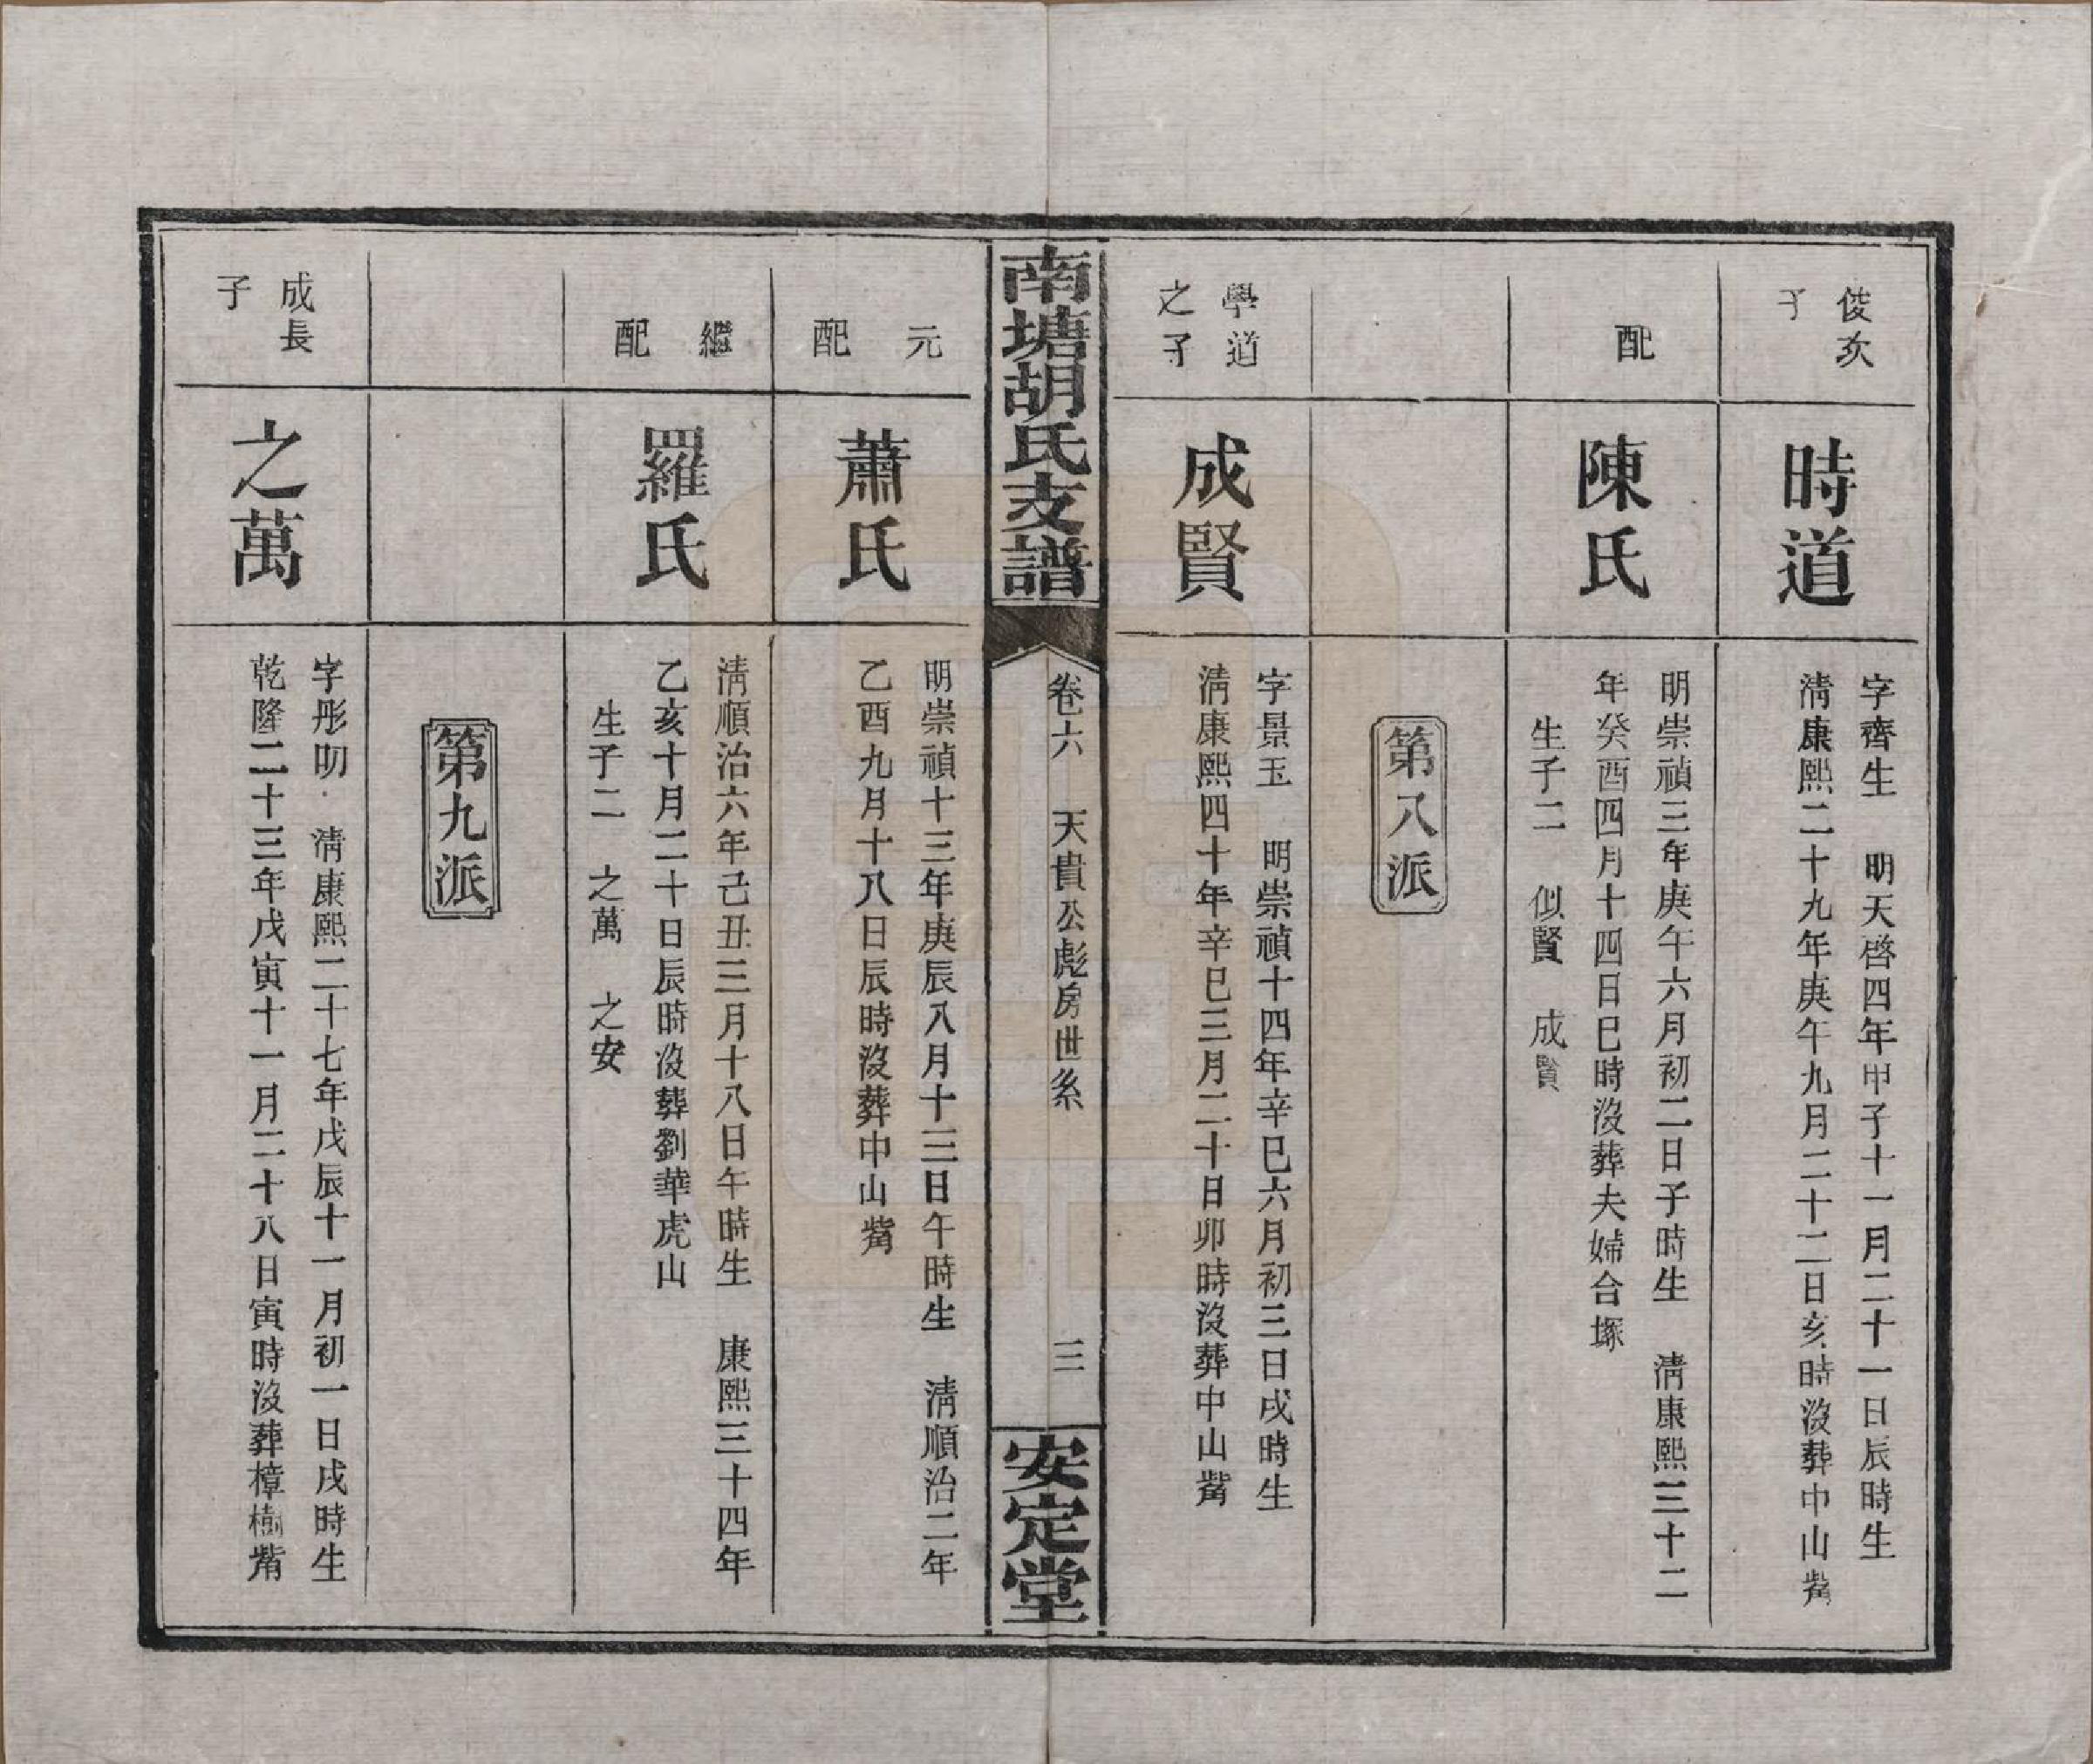 俊次
子
時道
字齊生　明天啓四年甲子十一月二十一日辰時生
淸康熙二十九年庚午九月二十二日亥時沒葬中山觜
配
陳氏
明崇禎三年庚午六月初二日子時生　淸康熙三十二
年癸酉四月十四日巳時沒葬夫婦合塚
生子二　似賢　成賢
第八派
學道
之子
成賢
字景玉　明崇禎十四年辛巳六月初三日戌時生
淸康熙四十年辛巳三月二十日卯時沒葬中山觜
南塘胡氏支譜
卷六　天貴公彪房世系
三
安定堂
元配
蕭氏
明崇禎十三年庚辰八月十三日午時生　淸順治二年
乙酉九月十八日辰時沒葬中山觜
繼配
羅氏
淸順治六年己丑三月十八日午時生　康熙三十四年
乙亥十月二十日辰時沒葬劉華虎山
生子二　之萬　之安
第九派
成長
子
之萬
字彤明　淸康熙二十七年戊辰十一月初一日戌時生
乾隆二十三年戊寅十一月二十八日寅時沒葬樟樹觜